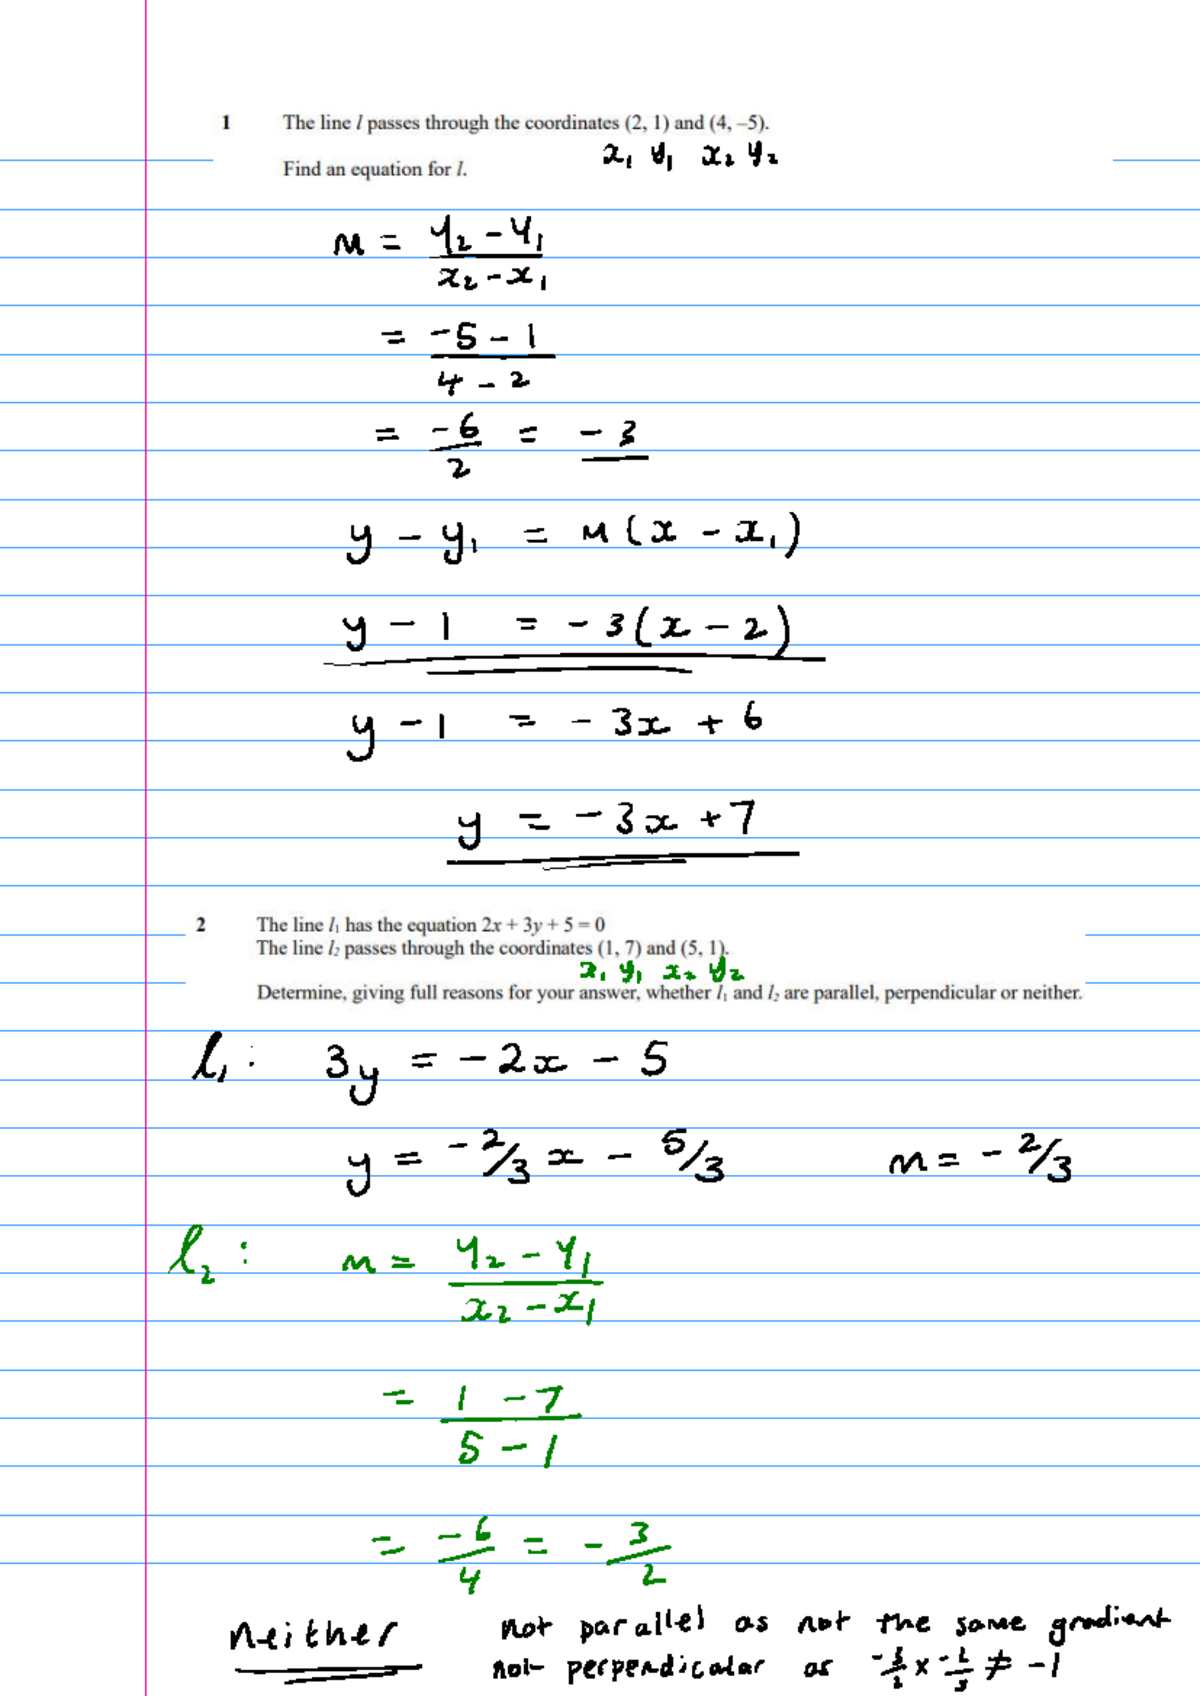 1 The line l passes through the coordinates (2, 1) and (4, –5).
x₁ y₁ x₂ y₂
Find an equation for l.
m = y₂ - y₁ / x₂ - x₁
= -5 - 1 / 4 - 2
= -6/2 = -3
y - y₁ = m(x - x₁)
y - 1 = -3(x - 2)
y - 1 = -3x + 6
y = -3x + 7
2 The line l₁ has the equation 2x + 3y + 5 = 0
The line l₂ passes through the coordinates (1, 7) and (5, 1).
x₁ y₁ x₂ y₂
Determine, giving full reasons for your answer, whether l₁ and l₂ are parallel, perpendicular or neither.
l₁: 3y = -2x - 5
y = -2/3 x - 5/3 m = -2/3
l₂: m = y₂ - y₁ / x₂ - x₁
= 1 - 7 / 5 - 1
= -6/4 = -3/2
neither not parallel as not the same gradient
not perpendicular as -3/2 x -2/3 ≠ -1